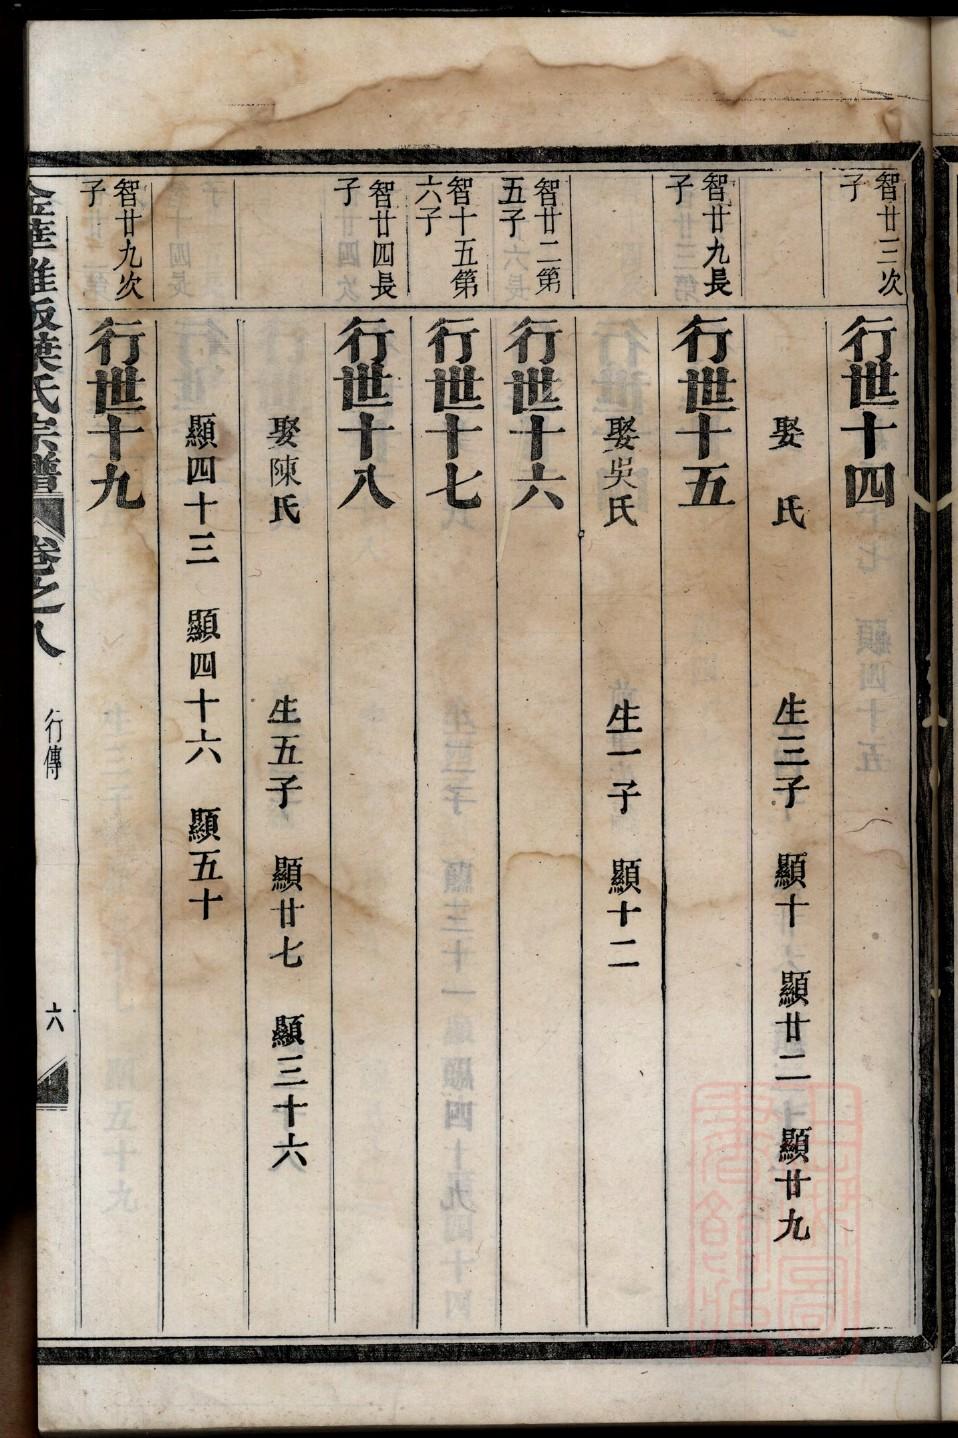 智廿三次
子
行世十四
娶　氏　生三子　顯十　顯廿二　顯廿九
智廿九長
子
行世十五
娶吳氏　生一子　顯十二
智廿二第
五子
行世十六
智十五第
六子
行世十七
智廿四長
子
行世十八
娶陳氏　生五子　顯廿七　顯三十六
顯四十三　顯四十六　顯五十
智廿九次
子
行世十九
葉氏宗譜　卷之八　行傳　六